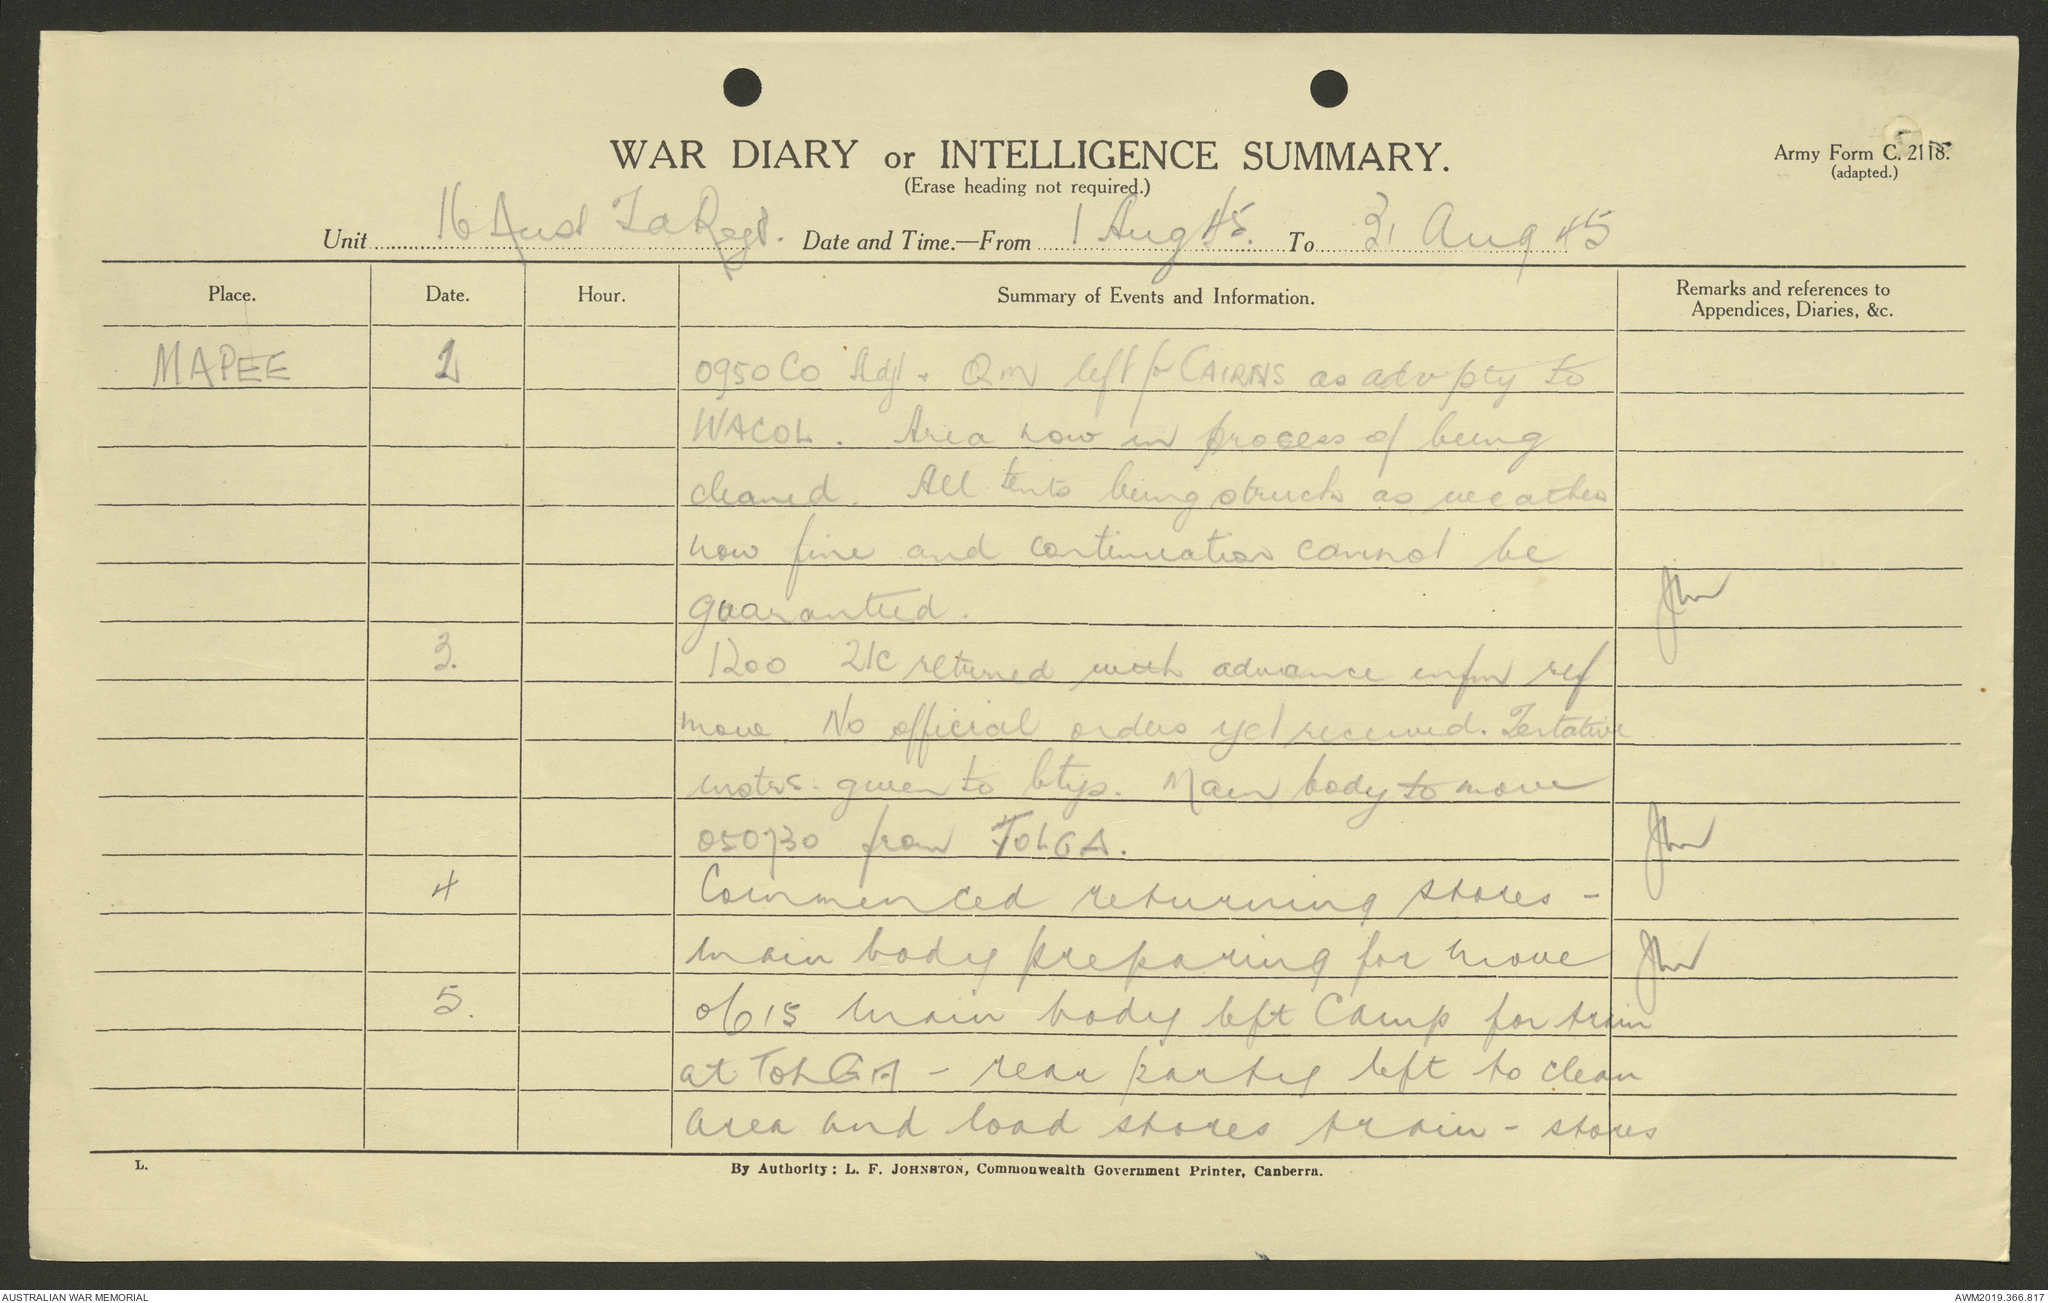 WAR DIARY or INTELLIGENCE SUMMARY.
(Erase heading not required.)
Army Form C. 2118.
(adapted.)
Unit 16 Aust Fd Regt. Date and Time.—From 1 Aug 45. To 31 Aug 45
Place. Date. Hour. Summary of Events and Information. Remarks and references to Appendices, Diaries, &c.
MAPEE 2 0950 CO Adjt + QM left for CAIRNS as adv pty to
WACOL. Area now in process of being
cleaned. All tents being struck as weather
now fine and continuation cannot be
guaranteed.
3. 1200 2IC returned with advance infm ref
move. No official orders yet received. Tentative
instrs. given to btys. Main body to move
050730 from TOLGA.
4 Commenced returning stores -
main body preparing for move
5. 0615 main body left Camp for train
at TOLGA - rear party left to clean
area and load stores train - stores
L.
By Authority: L. F. JOHNSTON, Commonwealth Government Printer, Canberra.
AUSTRALIAN WAR MEMORIAL
AWM2019.366.817